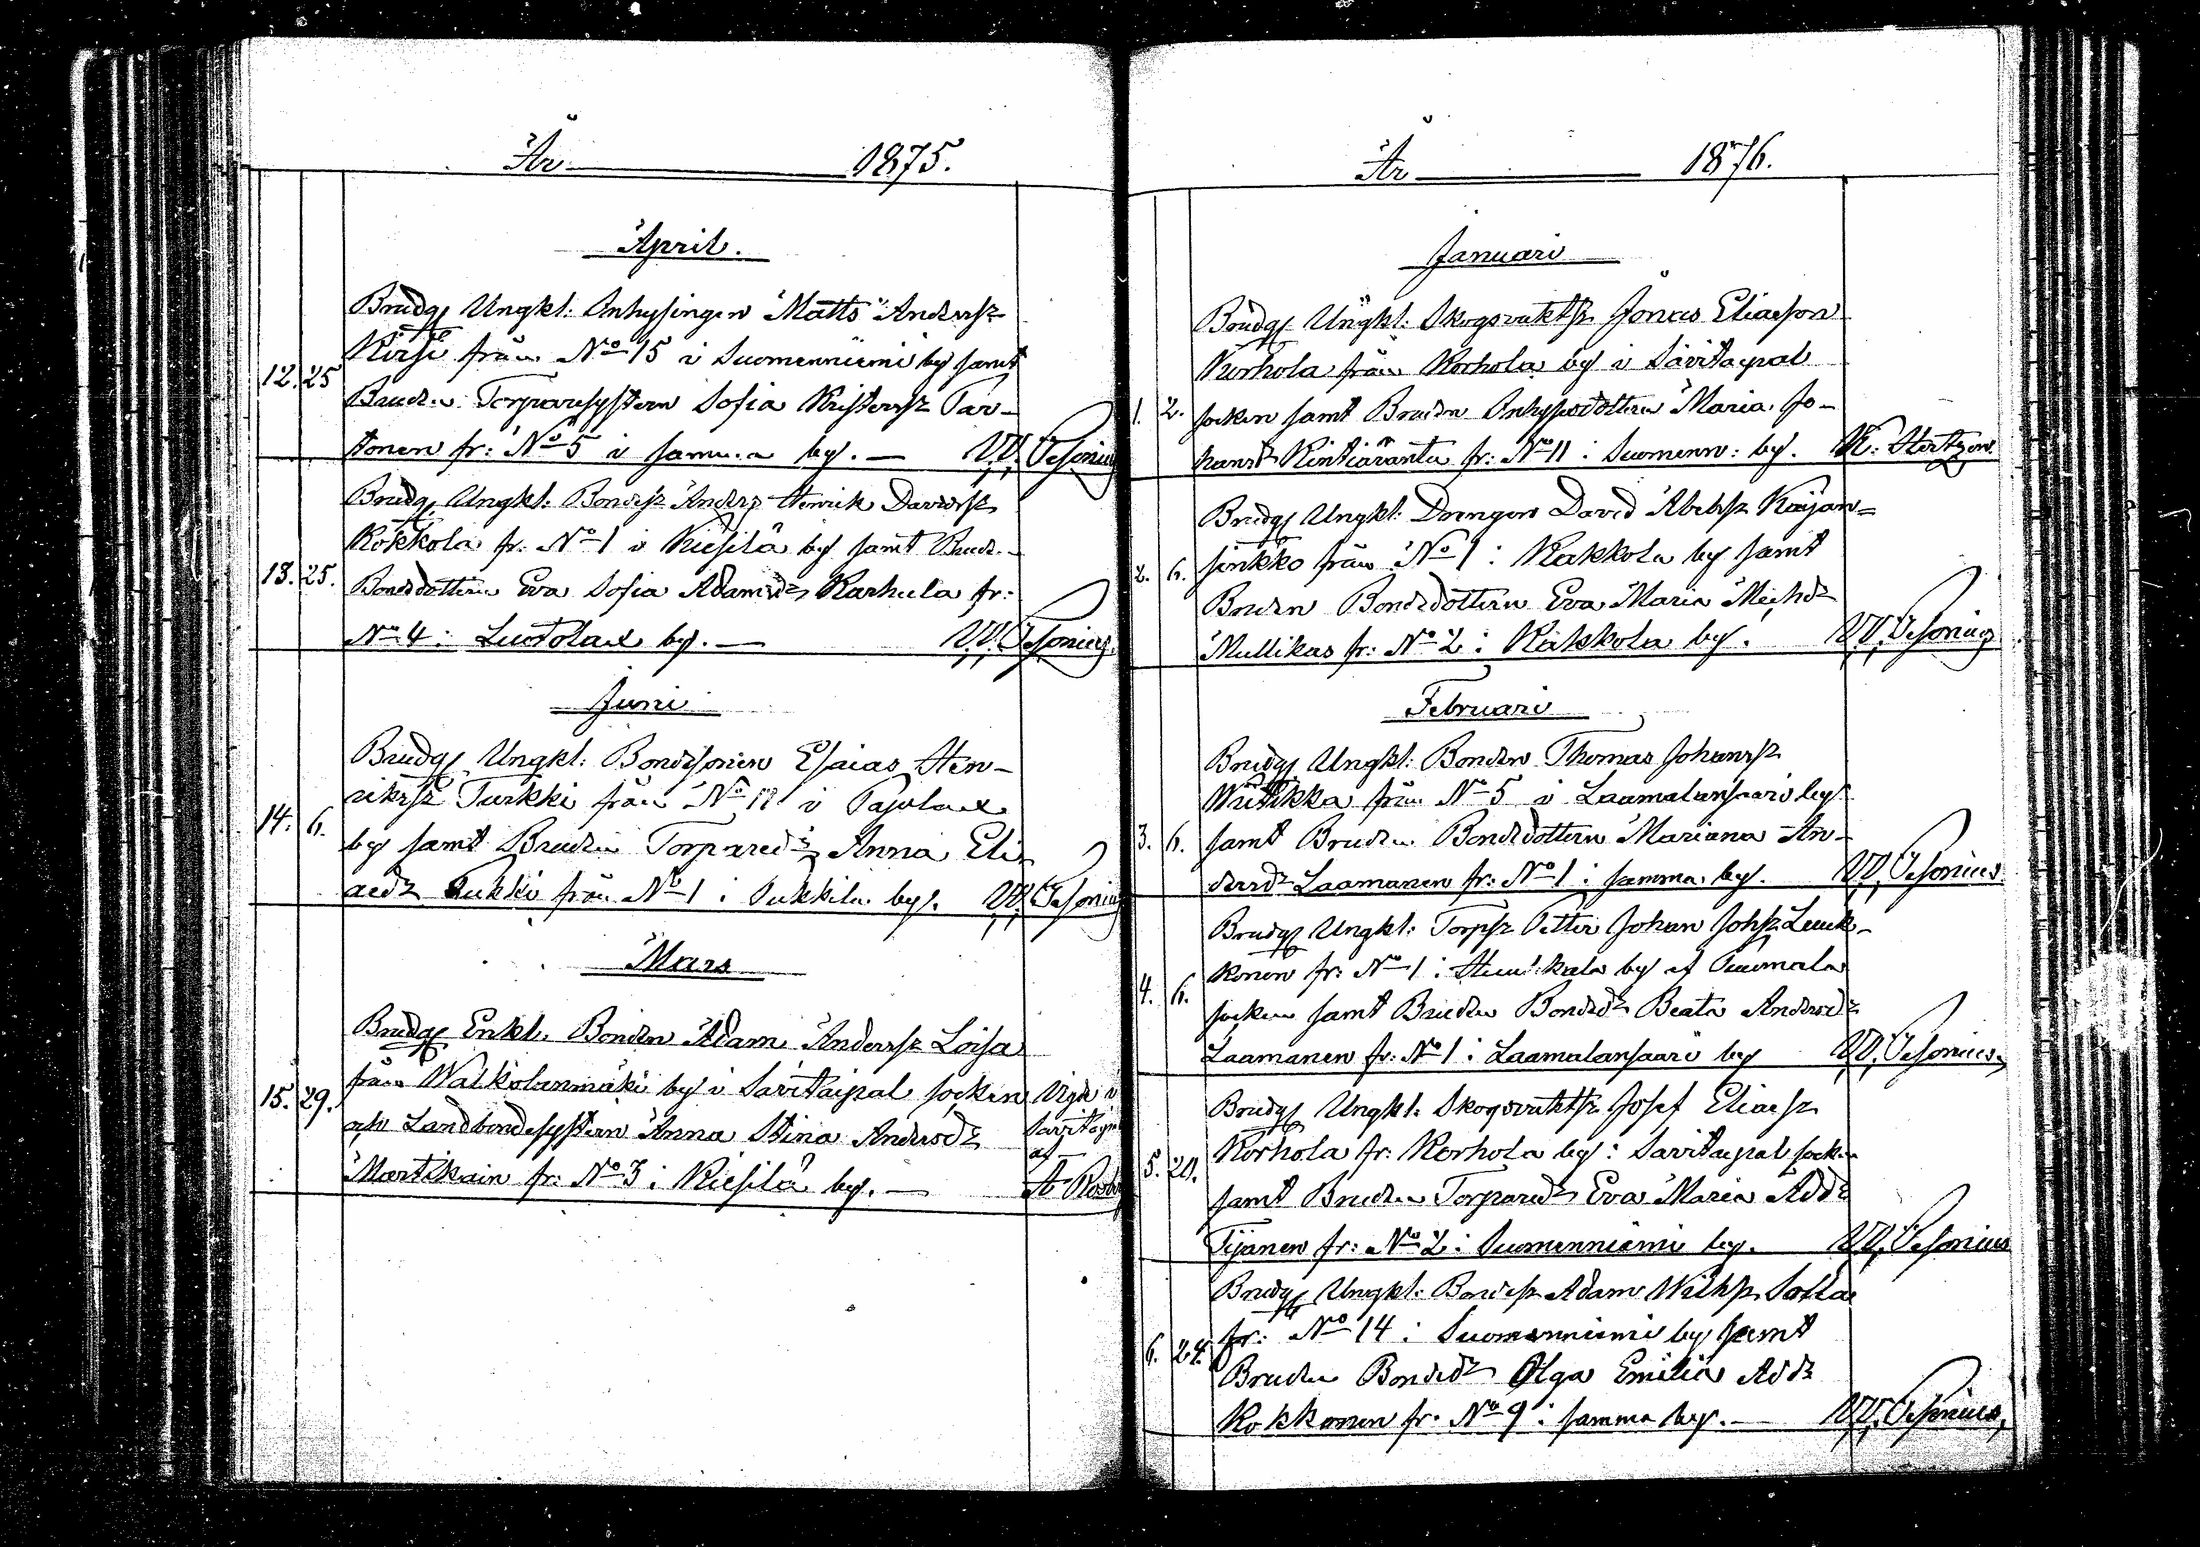 År 1875.
April.
Brudg Ungkl: Inhysingen Matts Anderssz
Kirsi från No 15 i Suomenniemi by samt
12. 25
Bruden Torparesystern Sofia Kristersz Par-
tonen fr: No 5 i samma by. — W. Pesonius
Brudg Ungkl: Bondesz Anders Henrik Davidsz
Kokkola fr: No 1 i Kiesilä by samt Brud.
13. 25. Bondedottern Eva Sofia Adamsdz Karhula fr:
No 4 i Luotolax by. — W. Pesonius.
Juni
Brudg Ungkl: Bondesonen Esaias Hen-
rikssz Turkki från No i Pajulax
14. 6.
by samt Bruden Torparedz Anna Eli-
aedz Tukki från No 1 i Pukkila by. W. Pesonius
Mars
Brudg Enkl. Bonden Adam Anderssz Loisa
från Walkolanmäki by i Savitaipal socken Vigde i
15. 29.
och Landbondesystern Anna Stina Andersdz Savitaipal
af
Martikain fr: No 3 i Kiesilä by. —
År 1876.
Januari
Brudg Ungkl: Skogsvaktsz Jonas Eliasson
Korhola från Korhola by i Savitaipal
1. 2. socken samt Bruden Inhysedottern Maria Jo-
hansd Rintiäranta fr: No 11 i Suomenn: by. K: Hertzen.
Brudg Ungkl: Drengen David Abelsz Kaijan=
2. 6. sinkko från No 1 i Kakkola by samt
Bruden Bondedottern Eva Maria Michdz
Mullikas fr: No 2 i Kakkola by. W. Pesonius
Februari
Brudg Ungkl: Bonden Thomas Johanssz
från No 5 i Laamalansaari by
3. 6. samt Bruden Bondedottern Mariana An-
dersdz Laamanen fr: No 1 i samma by. W. Pesonius
Brudg Ungkl: Torpsz Petter Johan Johsz Leuk-
konen fr: No 1 i by af Puumala
4. 6.
socken samt Bruden Bondedz Beata Andersdz
Laamanen fr: No 1 i Laamalansaari by W. Pesonius
Brudg Ungkl: Skogsvaktsz Josef Eliaesz
Korhola fr: Korhola by i Savitaipal socken
5. 20.
samt Bruden Torparedz Eva Maria Addz
Tijanen fr: No 2 i Suomenniemi by. W. Pesonius
Brudg Ungkl: Bondesz Adam Wilhsz Sotla
fr: No 14 i Suomenniemi by samt
6. 24.
Bruden Bondedz Olga Emilia Addz
Kokkonen fr: No 9 i samma by. — W. Pesonius,